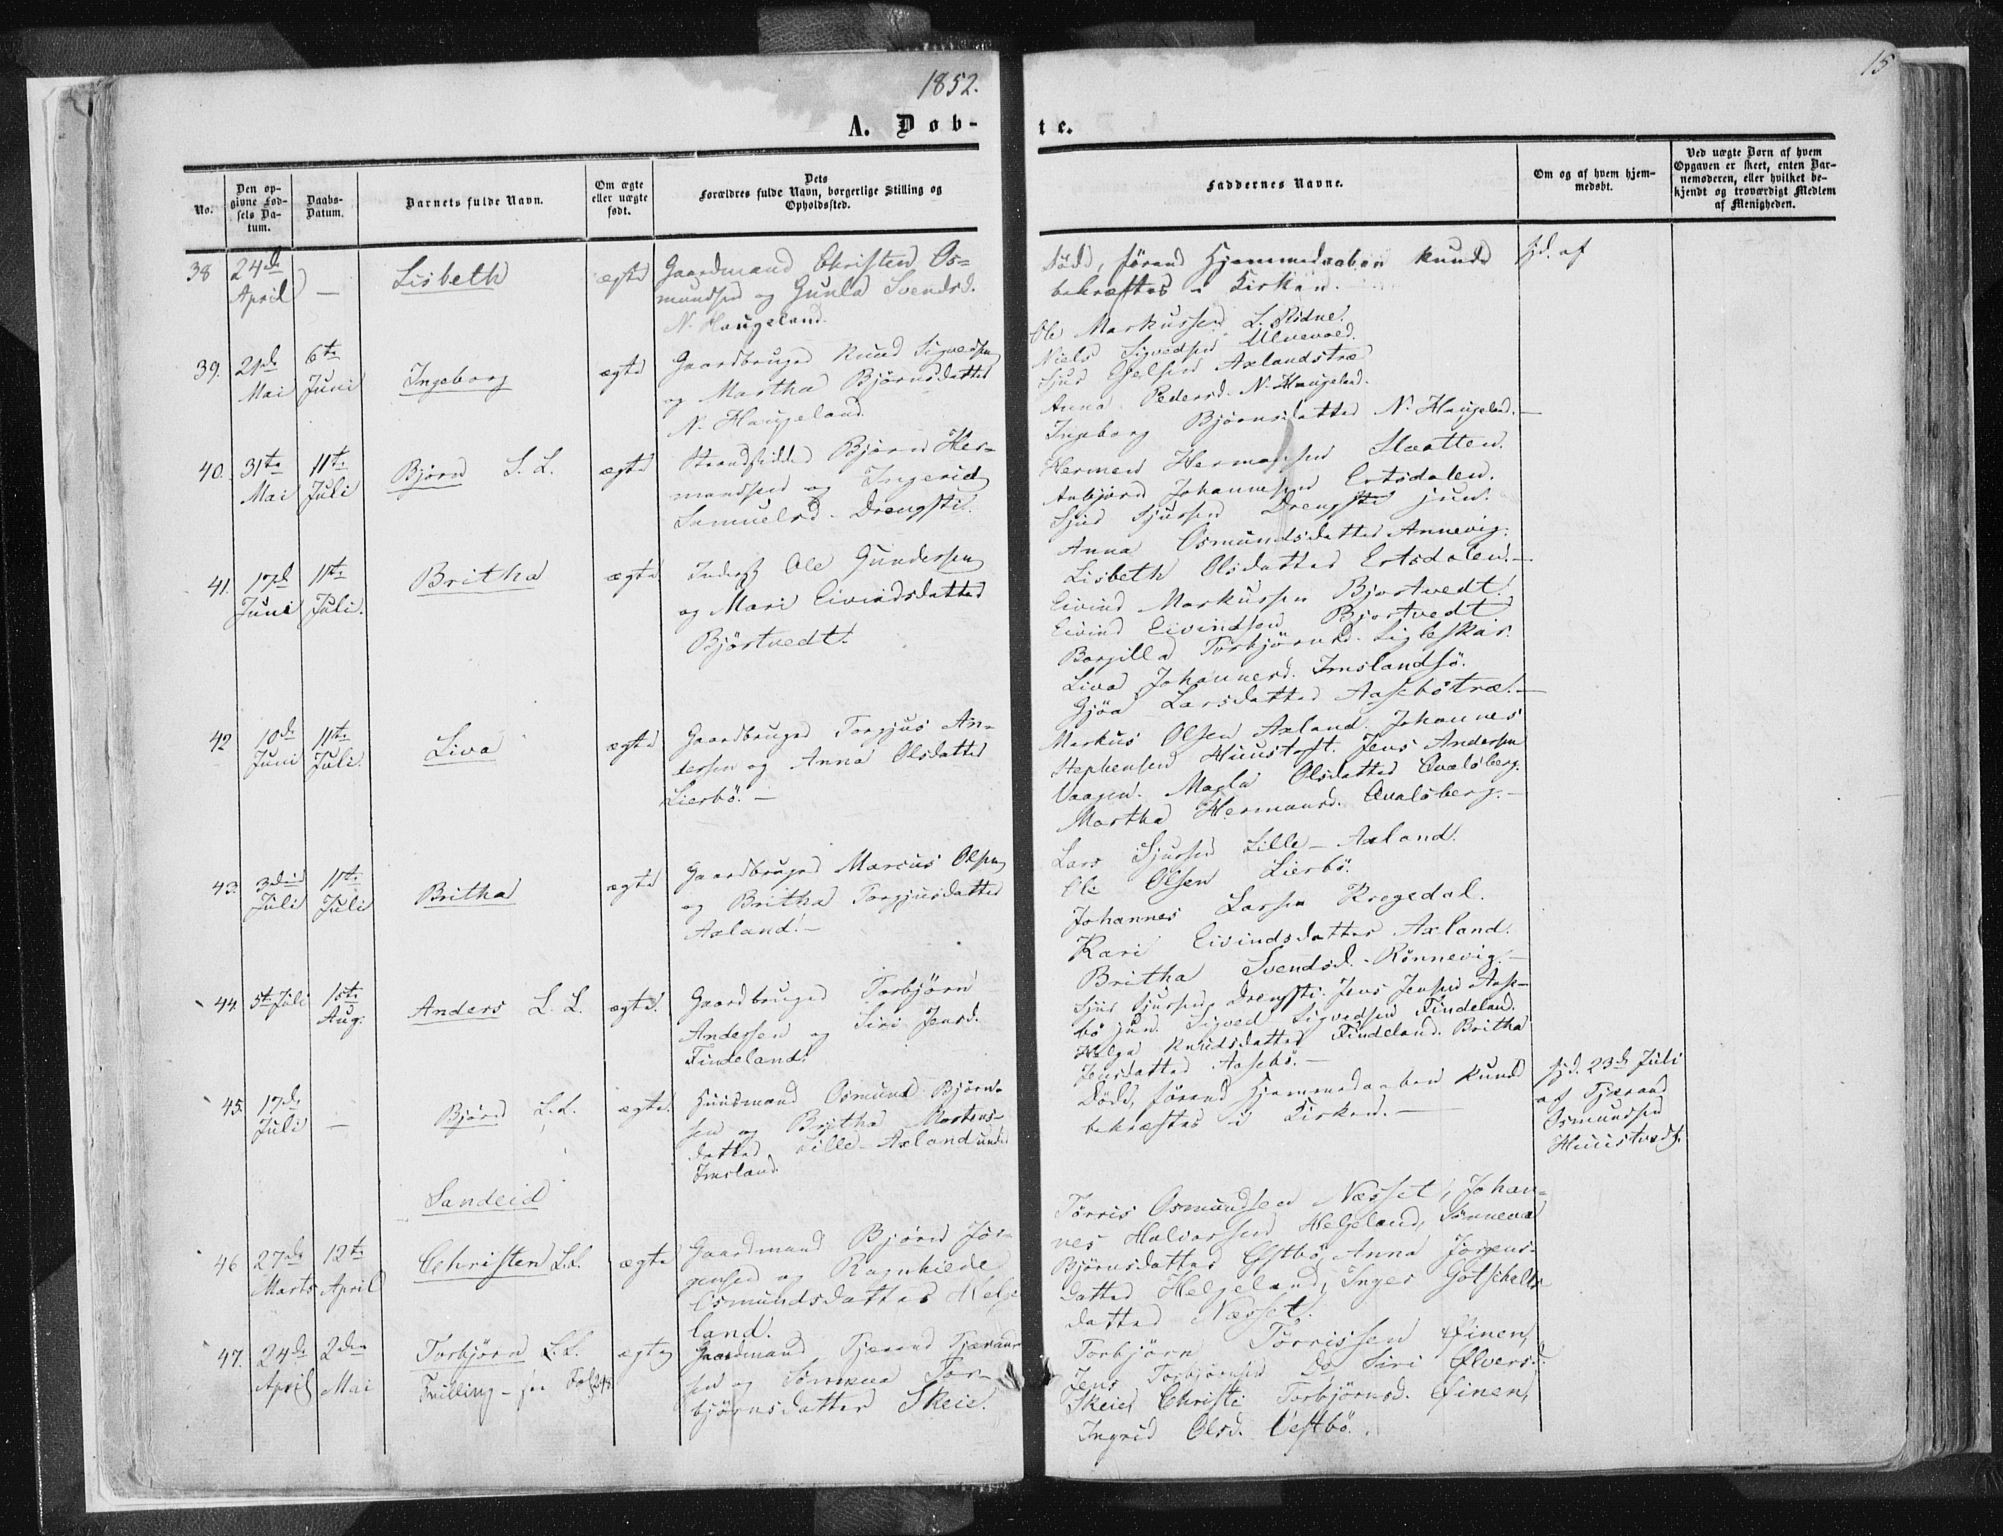 1852.
15
A. Døb-
te.
No.
Den op-
givne Fød-
sels Da-
tum.
Daabs-
Datum.
Barnets fulde Navn.
Om ægte
eller uægte
født.
Dets
Forældres fulde Navn, borgerlige Stilling og
Opholdssted.
Faddernes Navne.
Om og af hvem hjem-
medøbt.
Ved uægte Børn af hvem
Opgaven er skeet, enten Bar-
nemoderen, eller hvilket be-
kjendt og troværdigt Medlem
af Menigheden.
38 24de April — Lisbeth ægte
Gaardmand Christen Os-
mundsen og Gunla Svendsd.
N. Haugeland.
Død, førend Hjemmedaaben kunde
bekræftes i Kirken.
hjd. af
39. 21de Mai 6te Juni Ingeborg ægte
Gaardbruger Knud Sigvedsen
og Martha Bjørnsdatter
N. Haugeland.
Ole Markussen L. Ridne.
Niels Sigvedsen Ulvevoed.
Sjur Axlandstræ
Anna Pedersd. N. Haugeland.
Ingeborg Bjørnsdatter N. Haugeland. —
40. 31te Mai 11te Juli Bjørn L. L. ægte
Strandsidder Bjørn Her-
mandsen og Ingerid
Samuelsd. Drengsti.
Hermen Hermansen
Johannesen Ertsdalen.
Sjur Sjursen Drengsti jun.
Anna Osmundsdatter Annevig.
Lisbeth Olsdatter Ertsdalen. —
41. 17de Juni 11te Juli. Britha ægte
Inderst Ole Gundersen
og Mari Eivindsdatter
Bjørstvedt.
Eivind Markussen Bjørstvedt.
Eivind Eivindsen Bjørstvedt
Borgilla Torbjørnsd. Ligleskar.
Liva Johannesd. Imslandsø.
Gjøa Larsdatter Aasebøtræ. —
42 10de Juni 11te Juli. Liva ægte
Gaardbruger Torgjus An-
dersen og Anna Olsdatter
Lierbø. —
Markus Olsen Axland. Johannes
Stephensen Huustoft. Jens Andersen
Vaagen. Magla Olsdatter Qvaløberg.
Martha Hermansd. Qvaløberg. —
43. 3die Juli 11te Juli Britha ægte
Gaardbruger Marcus Olsen
og Britha Torgjusdatter
Axland. —
Lars Sjursen Lille-Axland.
Ole Olsen Lierbø.
Johannes Larsen Krogedal.
Kari Eivindsdatter Axland.
Britha Svendsd. Rønnevig. —
44. 5te Juli 1ste Aug. Anders L. L. ægte.
Gaardbruger Torbjørn
Andersen og Siri Jensd.
Findeland.
Sjur Sjursen Drengsti. Jens Jensen Aase-
bø jun. Sigved Sigvedsen Findeland.
Helga Knudsdatter Findeland. Britha
Jensdatter Aasebø. —
45. 17de Juli — Bjørn L. L. ægte.
Huusmand Osmund Bjørn-
sen og Britha Mortens-
datter Lille-Axland under
Imsland.
Død, førend Hjemmedaaben kunde
bekræftes i Kirken. —
hjd. 23de Juli
af Tjærand
Osmundsen
Huustvedt.
Sandeid
46 27de Marts 12te April Christen L. L. ægte
Gaardmand Bjørn Jør-
gensen og Ragnhilde
Osmundsdatter Helge
land.
Tørris Osmundsen Næsset, Johan-
nes Halvorsen Helgeland, Sønneva
Bjørnsdatter Østbø, Anna Jørgens-
datter Helgeland, Inger Gotschalks
datter Næsset.
47. 24de April 2den Mai Torbjørn L. L. ægte
Tvilling
Gaardmand Tjærand Tjæran
sen og Sønneva Tor-
bjørnsdatter Skeie.
Torbjørn Tørrissen Øinen,
Jens Torbjørnsen Do Siri Ølversd.
Skeie, Christi Torbjørnsd. Øinen,
Ingrid Olsd. Vestbø.